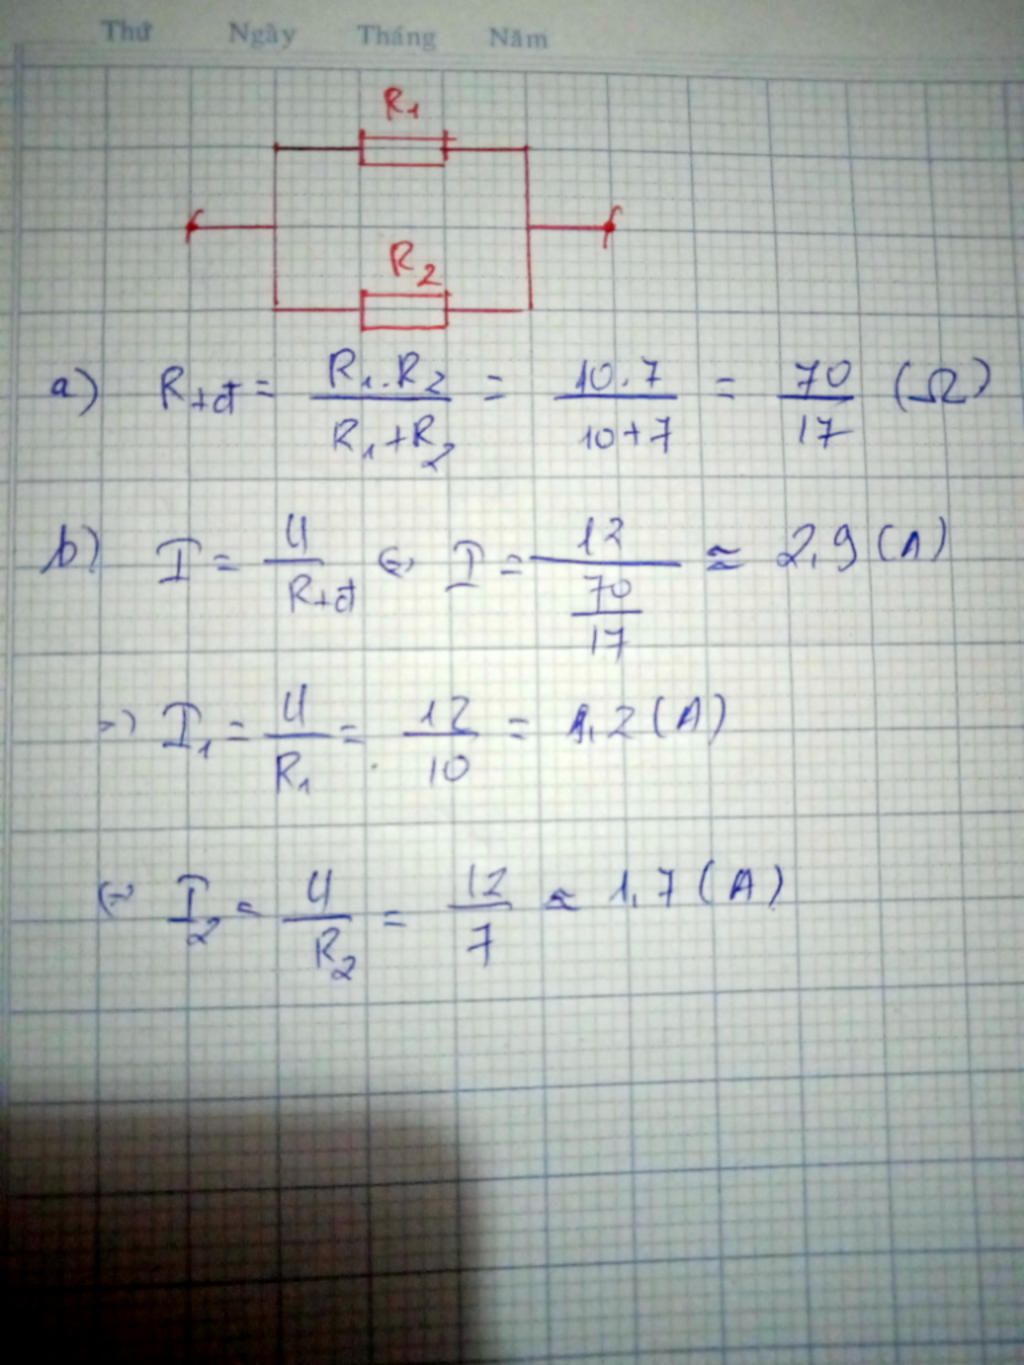 Thứ Ngày Tháng Năm
R1
R2
a) Rtđ = R1.R2 / R1+R2 = 10.7 / 10+7 = 70/17 (Ω)
b) I = U/Rtđ ⇔ I = 12 / 70/17 ≈ 2,9 (A)
=> I1 = U/R1 = 12/10 = 1,2 (A)
⇔ I2 = U/R2 = 12/7 ≈ 1,7 (A)